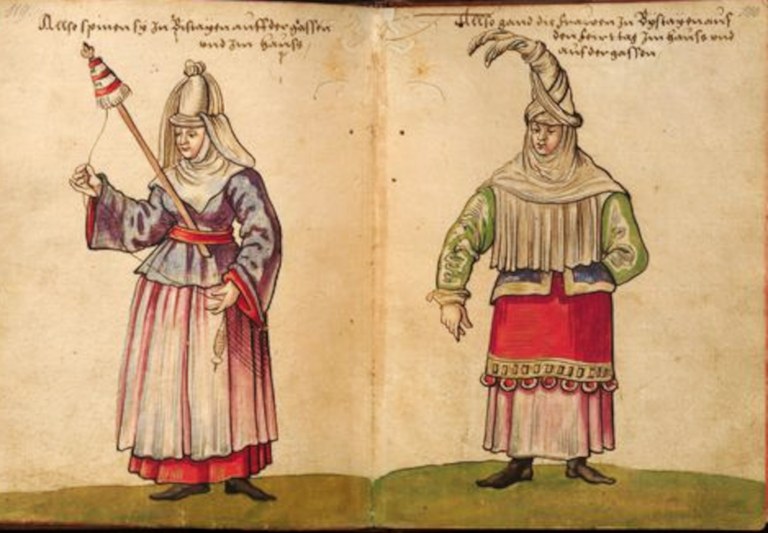 Allso spinen sy zu Pistayen auff der gassen
und zm hauss
Allso gand die frauwen zu Pystayen auf
den feirtag zm hauss und
auf der gassen